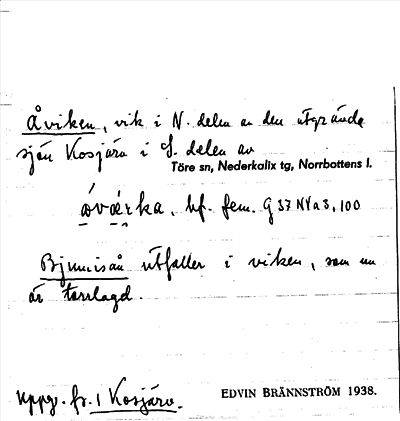 Åviken, vik i N. delen av den utgrävda
sjön Kosjärv i S. delen av
Töre sn, Nederkalix tg, Norrbottens l.
bf. fem. G 37 NYa 3, 100
utfaller i viken, som nu
är torrlagd.
uppg. fr. 1 Kosjärv.
EDVIN BRÄNNSTRÖM 1938.